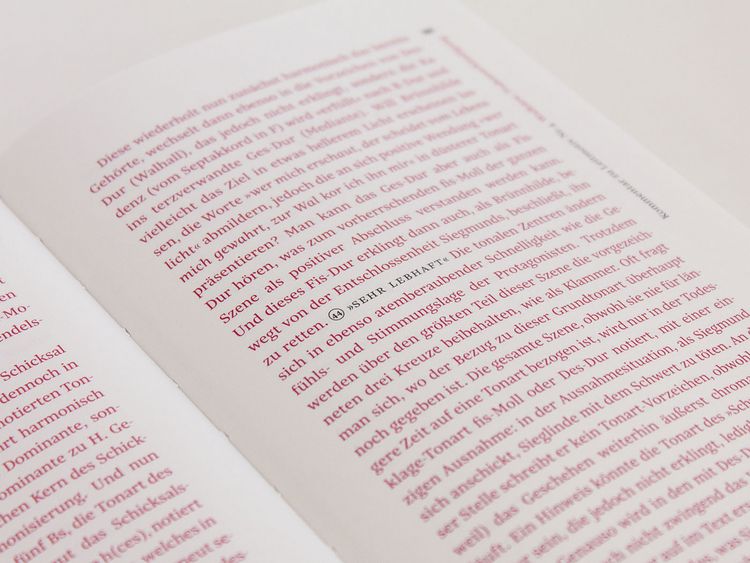 Mo-
endels-
Schicksal
dennoch in
notierten Ton-
art harmonisch
Dominante, son-
ominante zu H. Ge-
chen Kern des Schick-
monisierung. Und nun
fünf Bs, die Tonart des
ut das Schicksals-
h(ces), notiert
welches in
neut se-
Diese wiederholt nun zunächst harmonisch das bereits
Gehörte, wechselt dann ebenso in die Vorzeichen von Des-
Dur (Walhall), das jedoch nicht erklingt, sondern die Ka-
denz (vom Septakkord in F) wird verfüllt nach B-Dur und
ins terzverwandte Ges-Dur (Mediante). Will Brünnhilde
vielleicht das Ziel in etwas hellerem Licht erscheinen las-
sen, die Worte »wer mich erschaut, der scheidet vom Lebens-
licht« abmildern, jedoch die an sich positive Wendung »wer
mich gewahrt, zur Wal kor ich ihn mir« in düsterer Tonart
präsentieren? Man kann das Ges-Dur aber auch als Fis-
Dur hören, was zum vorherrschenden fis-Moll der ganzen
Szene als positiver Abschluss verstanden werden kann.
Und dieses Fis-Dur erklingt dann auch, als Brünnhilde, be-
wegt von der Entschlossenheit Siegmunds, beschließt, ihn
zu retten. 44 »SEHR LEBHAFT« Die tonalen Zentren ändern
sich in ebenso atemberaubender Schnelligkeit wie die Ge-
fühls- und Stimmungslage der Protagonisten. Trotzdem
werden über den größten Teil dieser Szene die vorgezeich-
neten drei Kreuze beibehalten, wie als Klammer. Oft fragt
man sich, wo der Bezug zu dieser Grundtonart überhaupt
noch gegeben ist. Die gesamte Szene, obwohl sie nie für län-
gere Zeit auf eine Tonart bezogen ist, wird nur in der Todes-
klage-Tonart fis-Moll oder Des-Dur notiert, mit einer ein-
zigen Ausnahme: in der Ausnahmesituation, als Siegmund
sich anschickt, Sieglinde mit dem Schwert zu töten. An
ser Stelle schreibt er kein Tonart-Vorzeichen, obwohl
weil) das Geschehen weiterhin äußerst chrom
läuft. Ein Hinweis könnte die Tonart des »Sch
er sein, die jedoch nicht erklingt, ledig
Genauso wird in den mit Des D
och nicht zwingend das
er auf im Text er
was
Kommentar zu